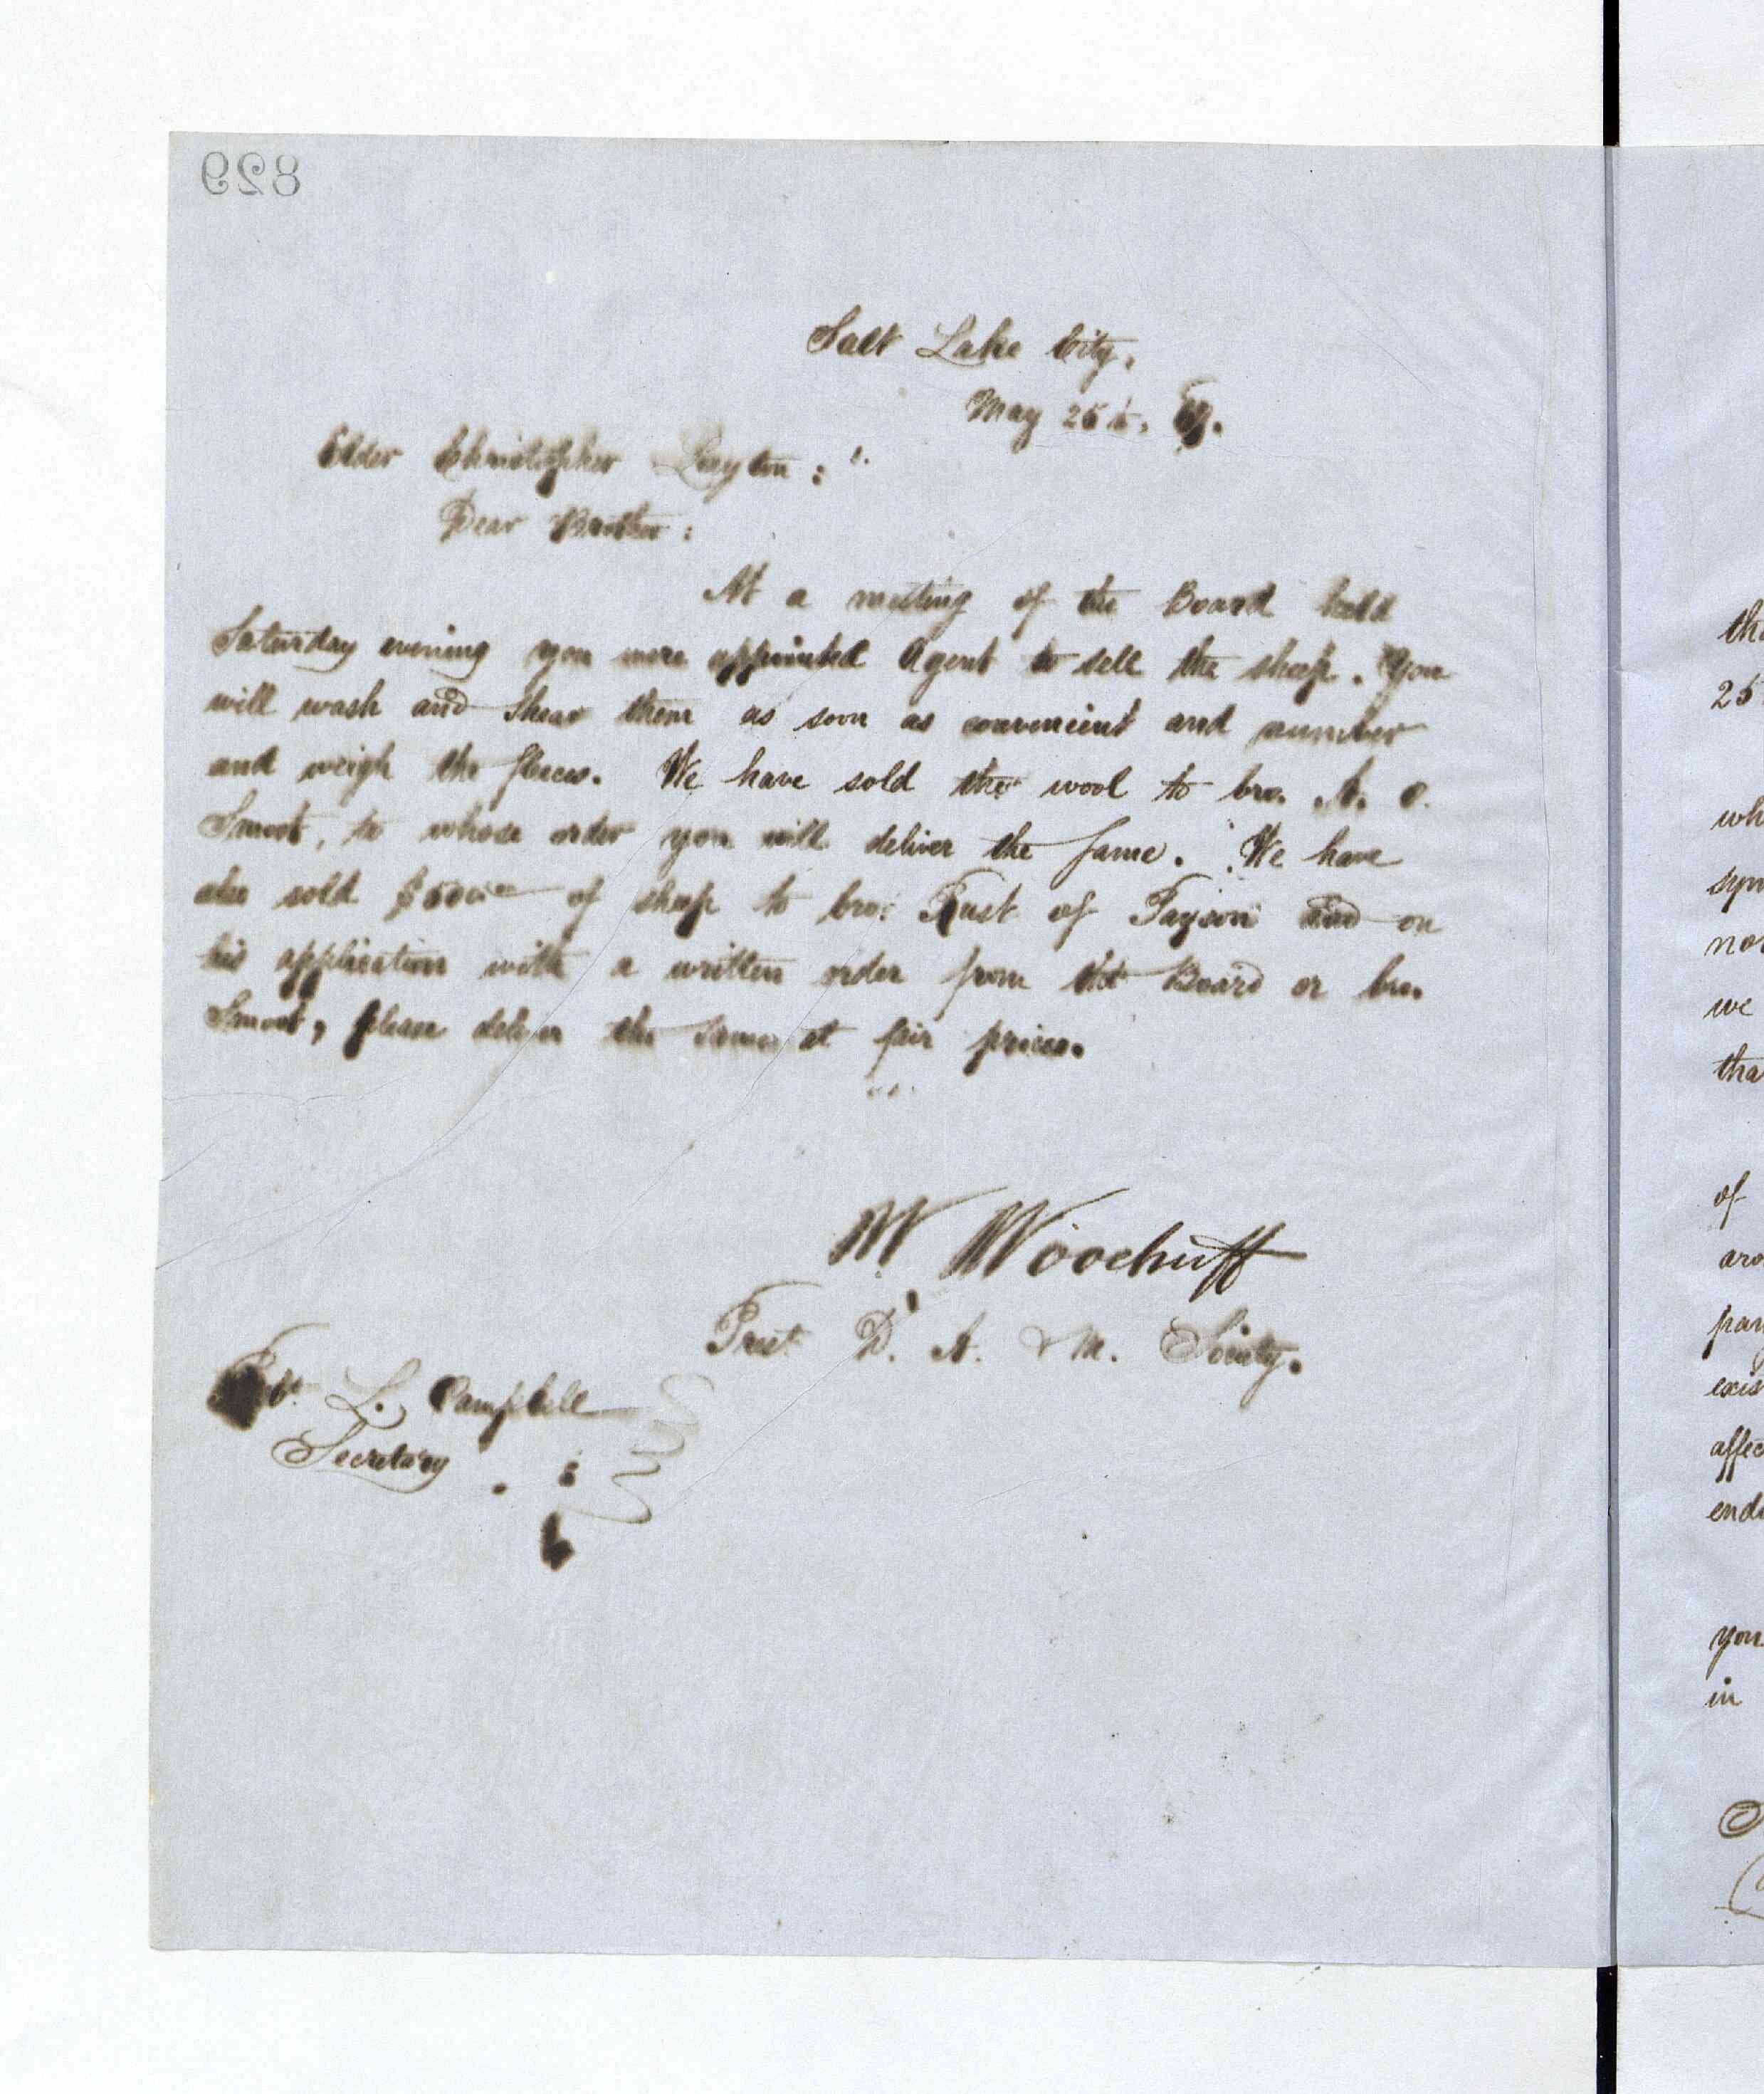 829
Salt Lake City,
May 25th.
Elder Christopher Layton:
Dear Brother:
At a meeting of the Board held
Saturday evening you were appointed Agent to sell the sheep. You
will wash and Shear them as soon as convenient and number
and weigh the fleeces. We have sold the wool to bro. A. O.
Smoot, to whose order you will deliver the same. We have
also sold of sheep to bro: of Payson and on
his application with a written order from the Board or bro.
Smoot, please deliver the same at fair prices.
W Woodruff
Prest. D. A. & M. Society.
L. Campbell
Secretary
25
we
of
you
in